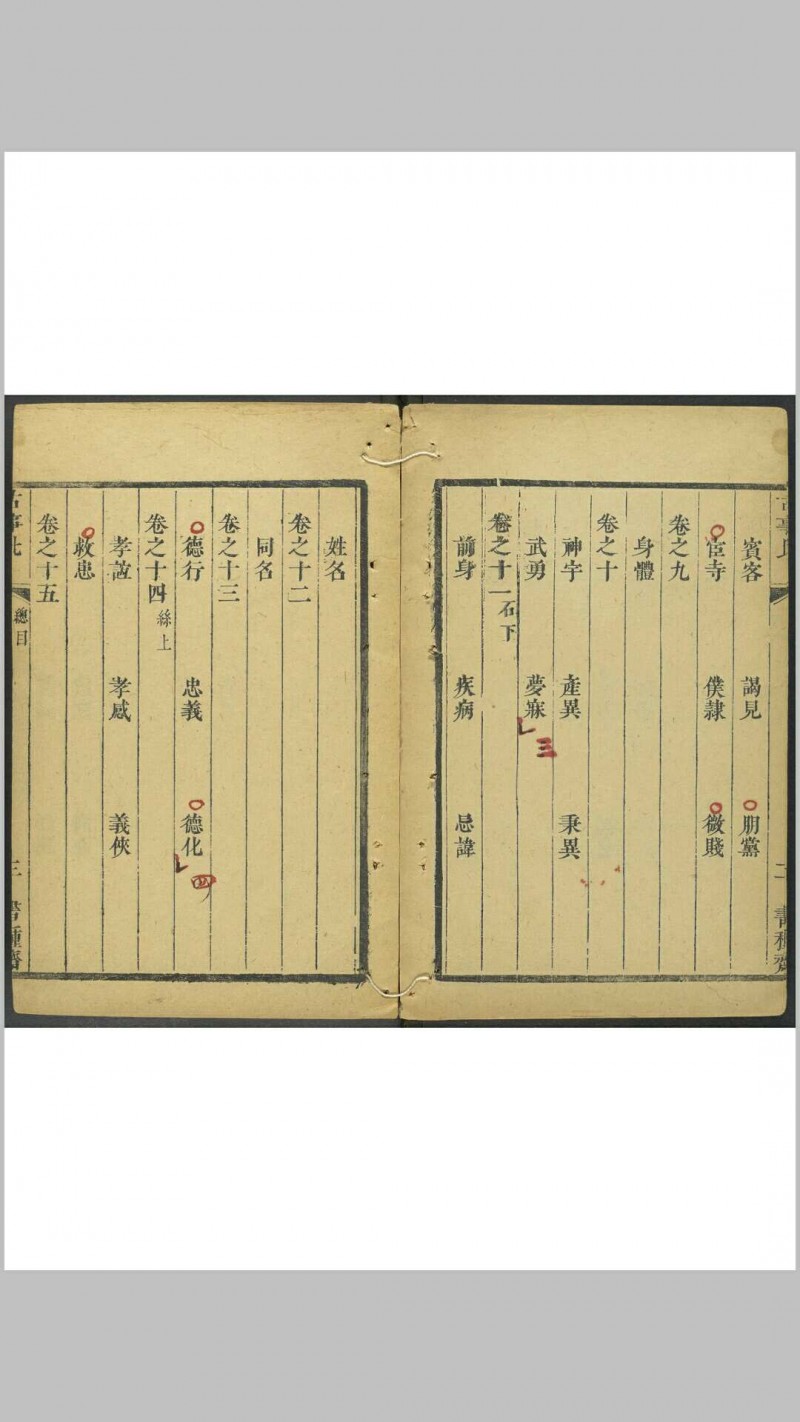 賓客 謁見 朋黨
宦寺 僕隸 微賤
卷之九
身體
卷之十
神字 產異 秉異
武勇 夢寐
三
卷之十一 石下
前身 疾病 忌諱
姓名
卷之十二
同名
卷之十三
德行 忠義 德化
四
卷之十四 絲上
孝 孝感 義俠
救患
卷之十五
總目 三 書種齋